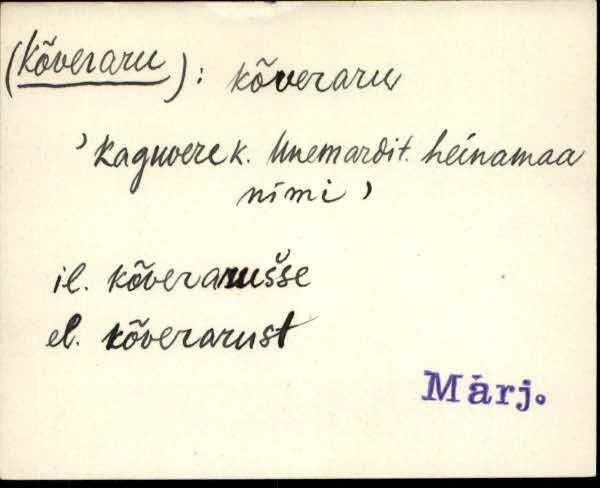 (Kõveraru): kõveraru
’Kaguvere k. Unemardit. heinamaa
nimi’
il. kõverarušše
el. kõverarust
Märj.